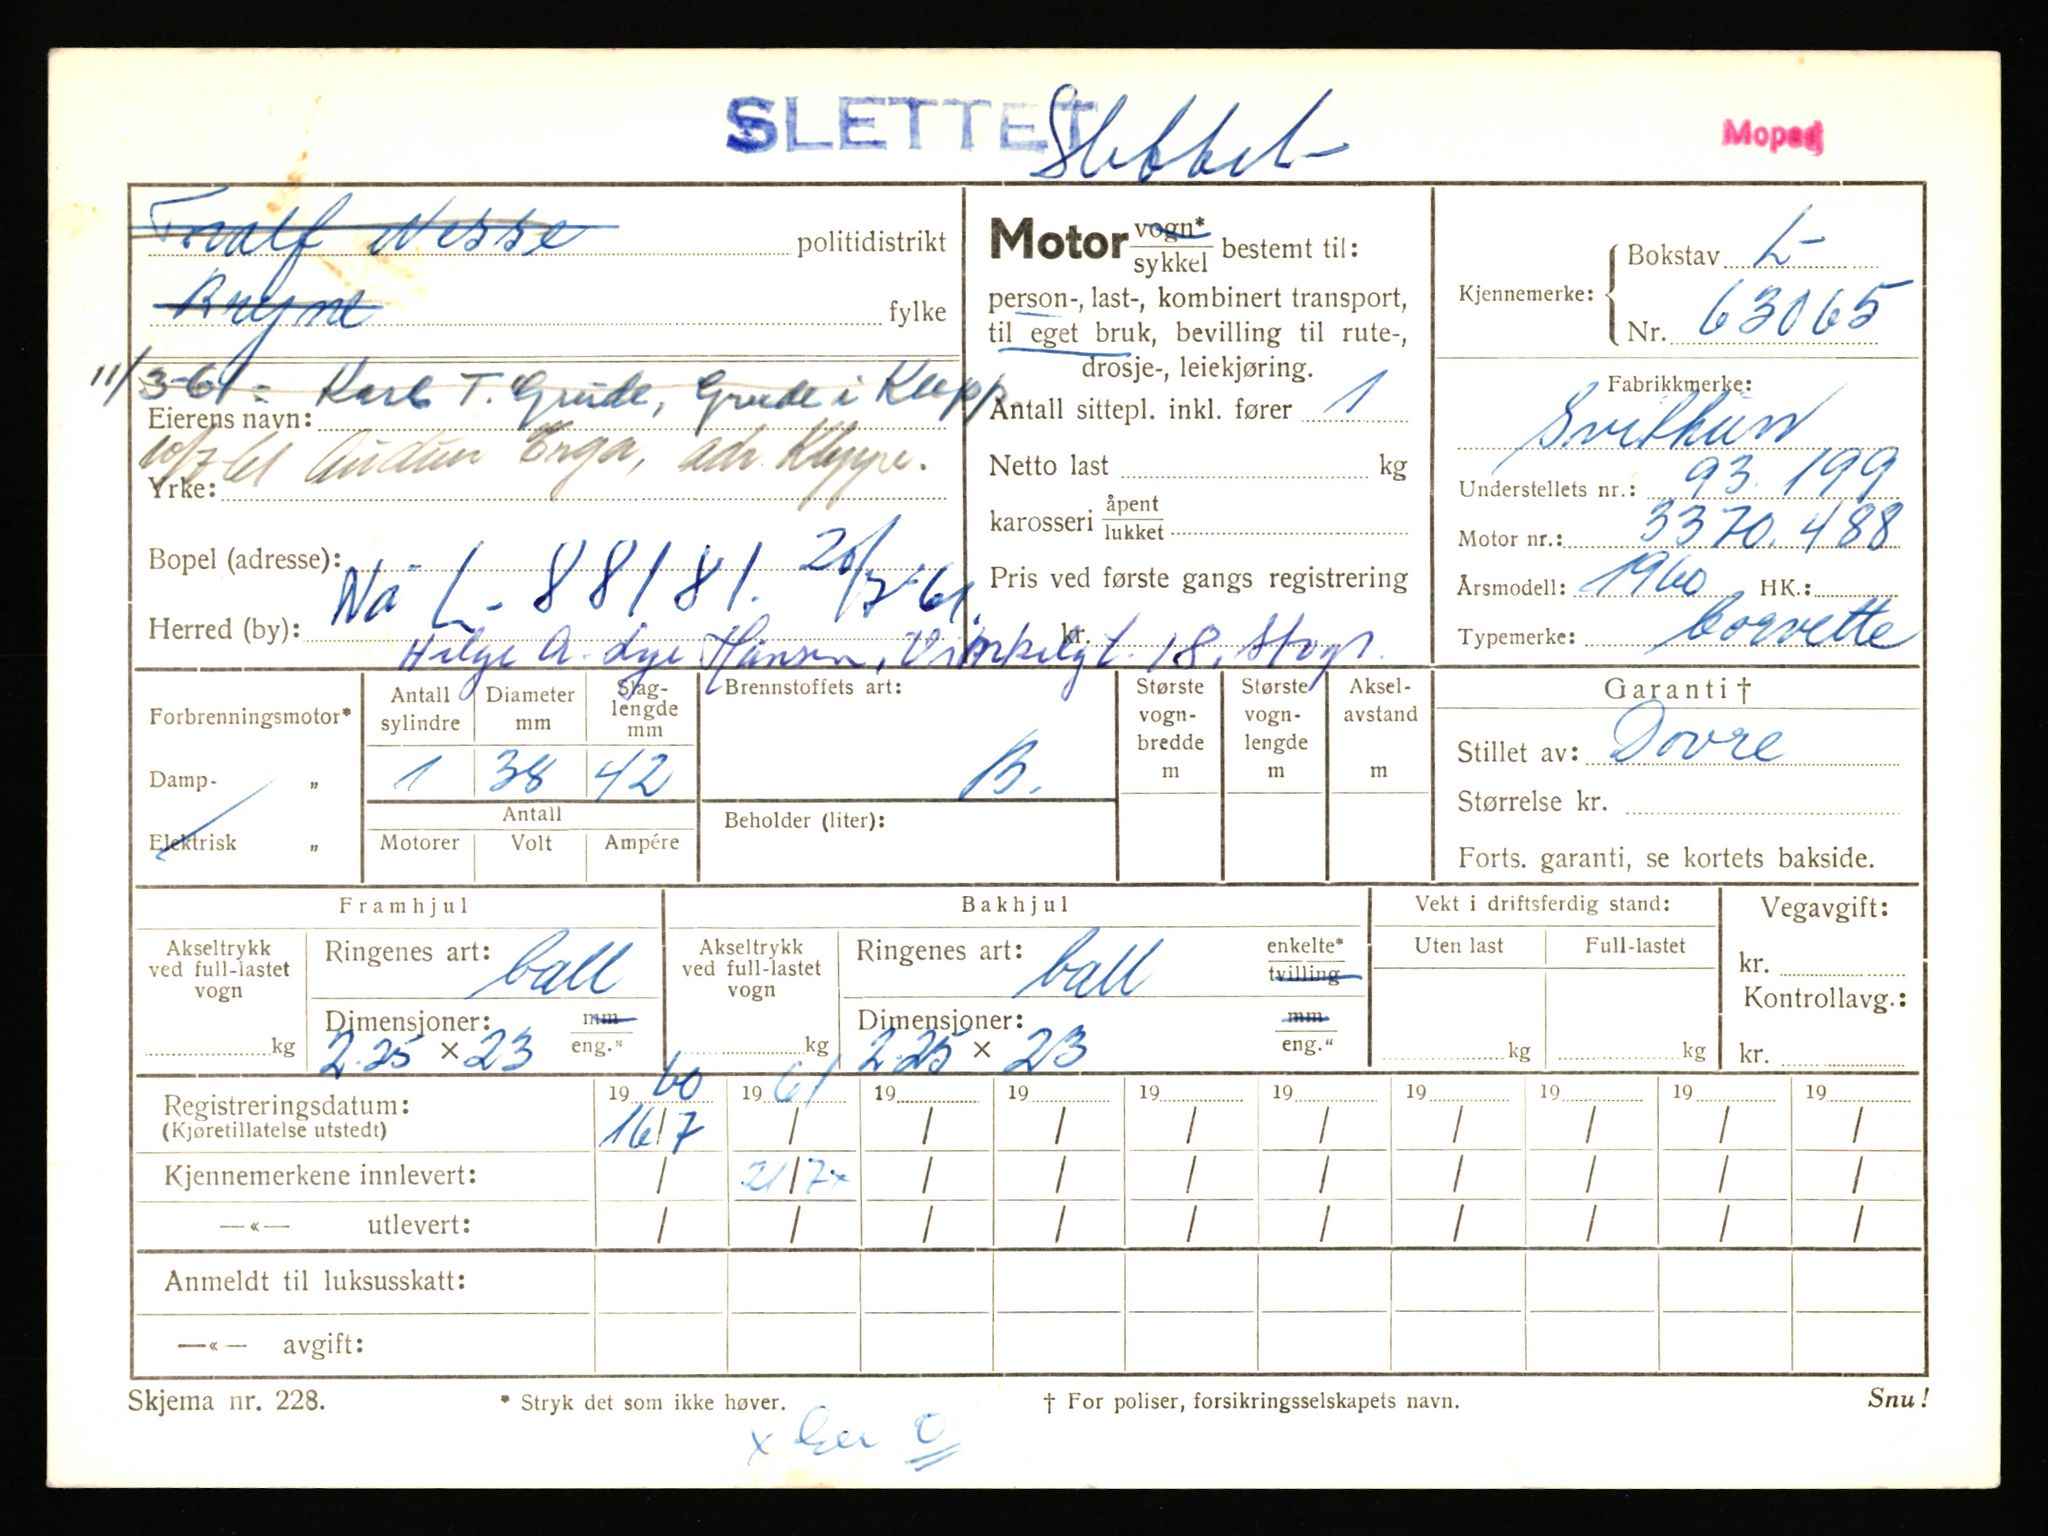 SLETTET Slettet
Moped
Tralf Nesse politidistrikt
Bryne fylke
11/3-61 = Karl T. Grude, Grude i Klepp
Eierens navn:
10/7-61 Audun Erga, adr. Kleppe.
Yrke:
Bopel (adresse):
Nå L-88181. 20/7-61
Herred (by):
Helge A. Lye Hansen, 18, Stvgr.
Motor vogn*
sykkel bestemt til:
person-, last-, kombinert transport,
til eget bruk, bevilling til rute-,
drosje-, leiekjøring.
Antall sittepl. inkl. fører 1
Netto last kg
karosseri åpent
lukket
Pris ved første gangs registrering
kr.
Kjennemerke: Bokstav L-
Nr. 63065
Fabrikkmerke:
Svithun
Understellets nr.: 93.199
Motor nr.: 3370.488
Årsmodell: 1960 HK.:
Typemerke: Corvette
Forbrenningsmotor*
Damp- „
Elektrisk „
Antall sylindre Diameter mm Slag-lengde mm
1 38 42
Antall
Motorer Volt Ampére
Brennstoffets art:
B.
Beholder (liter):
Største vogn-bredde m
Største vogn-lengde m
Aksel-avstand m
Garanti †
Stillet av: Dovre
Størrelse kr.
Forts. garanti, se kortets bakside.
Framhjul
Akseltrykk ved full-lastet vogn
kg
Ringenes art: ball
Dimensjoner: mm
2.25 × 23 eng."
Bakhjul
Akseltrykk ved full-lastet vogn
kg
Ringenes art: ball enkelte*
tvilling
Dimensjoner: mm
2.25 × 23 eng."
Vekt i driftsferdig stand:
Uten last Full-lastet
kg kg
Vegavgift:
kr.
Kontrollavg.:
kr.
19 60 19 61 19 19 19 19 19 19 19 19
Registreringsdatum: 16/7 / / / / / / / / /
(Kjøretillatelse utstedt)
Kjennemerkene innlevert: / 21/7x / / / / / / / /
—«— utlevert: / / / / / / / / / /
Anmeldt til luksusskatt:
—«— avgift:
Skjema nr. 228. * Stryk det som ikke høver. † For poliser, forsikringsselskapets navn. Snu!
x 0